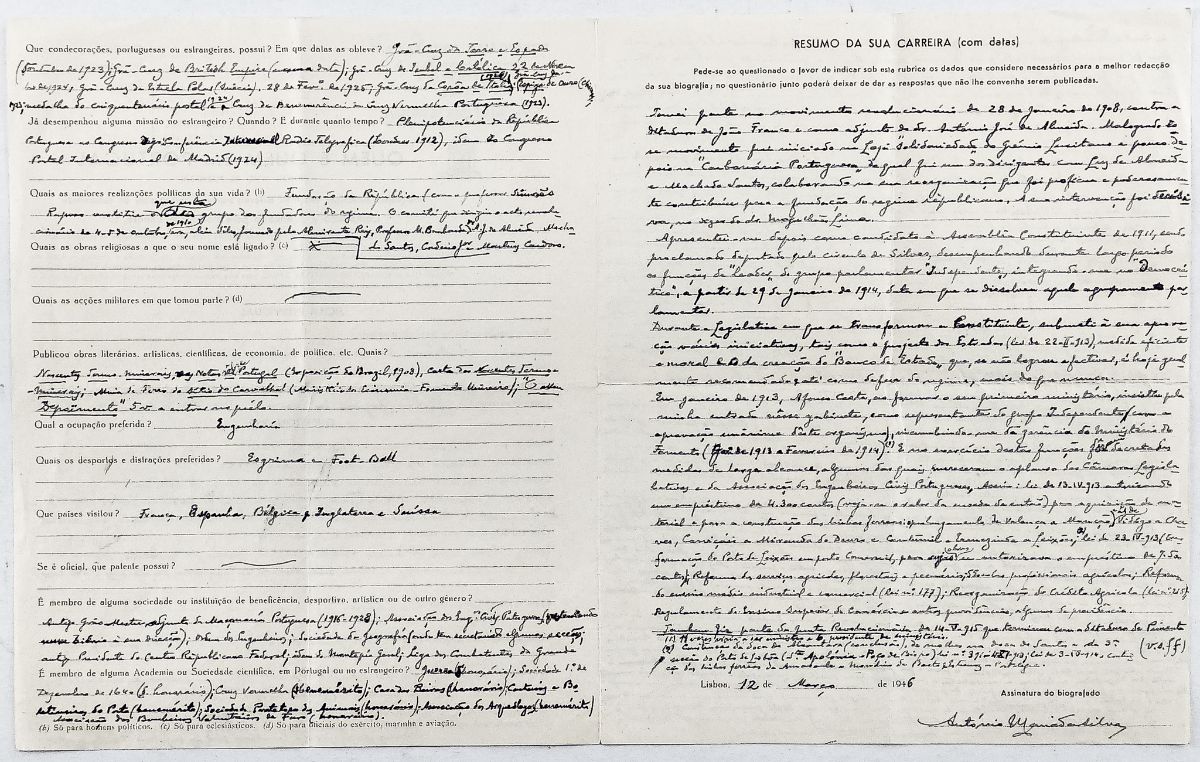 Que condecorações, portuguesas ou estrangeiras, possui? Em que datas as obteve? Grã-Cruz da Torre e Espada
(Outubro de 1923); Grã-Cruz do British Empire (mesma data); Grã-Cruz de Isabel a Católica, 22 de Novem
bro de 1924; Grã-Cruz da Estrela Polar (Suécia), 28 de Fev.º de 1925; Grã-Cruz da Coroa de Itália
medalha do cinquentenário postal, Cruz de Benemerência da Cruz Vermelha Portuguesa (1923).
Já desempenhou alguma missão no estrangeiro? Quando? E durante quanto tempo? Plenipotenciário da República
Portuguesa no Congresso Conferência Internacional Radio Telegrafica (Londres 1912), idem do Congresso
Postal Internacional de Madrid (1924)
Quais as maiores realizações políticas da sua vida? (b) Fundação da República (com o professor Simões
Raposo constituiu o grupo dos fundadores do regime. O comité que dirigiu a acto revolu
cionário de 4 e 5 de outubro, de 1910, era, além dêle, formado pelo Almirante Reis, Professor M. Bombarda, A. J. de Almeida, Macha
do Santos, Cordeiro J.or Monteny Cardoso.
Quais as obras religiosas a que o seu nome está ligado? (c)
Quais as acções militares em que tomou parte? (d)
Publicou obras literárias, artísticas, científicas, de economia, de política, etc. Quais?
Nascentes Termo-minerais de Portugal (Exposição do Brazil, 1908), Carta das Nascentes Termo-
minerais; Mina de Ferro de (Ministério da Economia - Fomento Mineiro); "O meu
Depoimento" 5 vol. a entrar no prélo.
Qual a ocupação preferida? Engenharia
Quais os desportos e distrações preferidas? Esgrima e Foot-Ball
Que países visitou? França, Espanha, Bélgica, Inglaterra e Suissa
Se é oficial, que patente possui?
É membro de alguma sociedade ou instituição de beneficência, desportiva, artística ou de outro género?
Antigo Grão Mestre Adjunto da Maçonaria Portuguesa (1916-1926); Associação dos Eng.os Civis Portugueses
Ordem dos Engenheiros; Sociedade de Geografia (onde tem secretariado algumas secções)
antigo Presidente do Centro Republicano Federal; idem do Montepio Geral; Liga dos Combatentes da Grande
É membro de alguma Academia ou Sociedade científica, em Portugal ou no estrangeiro? Guerra (honorário); Sociedade 1.º de
Dezembro de 1640 (S. honorário); Cruz Vermelha (benemérito); Casa dos Beirões (honorário); Costureiras
do Porto (benemérito); Sociedade Protetora dos Animais (honorário); Associação dos Arqueologos (benemérito)
Associação dos Bombeiros Voluntários de Faro (honorário).
(b) Só para homens políticos. (c) Só para eclesiásticos. (d) Só para oficiais do exército, marinha e aviação.
RESUMO DA SUA CARREIRA (com datas)
Pede-se ao questionado o favor de indicar sob esta rubrica os dados que considere necessários para a melhor redacção
da sua biografia; no questionário junto poderá deixar de dar as respostas que não lhe convenha serem publicadas.
Tomei parte no movimento revolucionário de 28 de Janeiro de 1908, contra a
ditadura de João Franco e como adjunto do dr. António José de Almeida. Malogrado ês
se movimento fui iniciado na Loja Solidariedade do Grémio Lusitano e pouco de
pois na "Carbonária Portuguesa" da qual fui um dos dirigentes com Luz de Almeida
e Machado Santos, colaborando na sua reorganização que foi profícua e poderosamen
te contribuiu para a fundação do regime republicano. A sua intervenção foi decisi
va, no dizer do dr. Magalhães Lima.
Apresentei-me depois como candidato à Assembleia Constituinte de 1911, sendo
proclamado deputado pelo circulo de Silves, desempenhando durante largo periodo
as funções de "leader" do grupo parlamentar "Independente", integrando-me no "Democrá
tico", a partir de 29 de Janeiro de 1914, data em que se dissolveu aquele agrupamento par
lamentar.
Durante a Legislatura em que se transformou a Constituinte, submeti à sua aprova
ção várias iniciativas, tais como o projecto dos Estradas (Lei de 22-II-913), medida eficiente
e moral e o da creação do "Banco do Estado", que, se não logrou efectivar, é hoje geral
mente recomendado até como defesa do regime, mais do que nunca.
Em Janeiro de 1913, Afonso Costa, ao formar o seu primeiro ministério, insistiu pela
minha entrada nêsse gabinete, como representante do grupo Independente (com a
aprovação unânime dêste organismo), incumbindo-me da gerência do Ministério do
Fomento (Jan. de 1913 a Fevereiro de 1914) (1). E no exercício destas funções decretadas
medidas de largo alcance, algumas das quais mereceram o aplauso das Câmaras Legis
lativas e da Associação dos Engenheiros Civis Portugueses. Assim: lei de 13-IV-913 autorisando
um empréstimo de 4.300 contos (veja-se o valor da moeda de então) para aquisição de ma
terial e para a construção das linhas ferreas: prolongamento de Valença a Monção, de Vidago a Cha
ves, Carviçais a Miranda do Douro e Contumil a Ermezinde a Leixões; lei de 23-IV-913 (trans
formação do Porto de Leixões em porto comercial, para cujas obras se autorizava o empréstimo de 7.500
contos); Reforma dos serviços agricolas, florestais e pecuários; Escolas profissionais agricolas; Reforma
do ensino médio industrial e comercial (lei n.º 177); Reorganização do Crédito Agricola (lei n.º 215)
Regulamento do Ensino Superior do Comércio e outras providências, algumas de previdencia.
Também fiz parte da Junta Revolucionária de 14-V-915 que terminou com a ditadura de Pimenta
(1)
(2) Construção da doca de Alcantara de molhes na doca de Santos e da 3.ª
secção do Porto de Lisboa (Sta Apolónia - Poço do Bispo)
ção das linhas ferreas de Portalegre.
(v.s.f.f.)
Lisboa, 12 de Março de 1946
Assinatura do biografado
António Maria da Silva